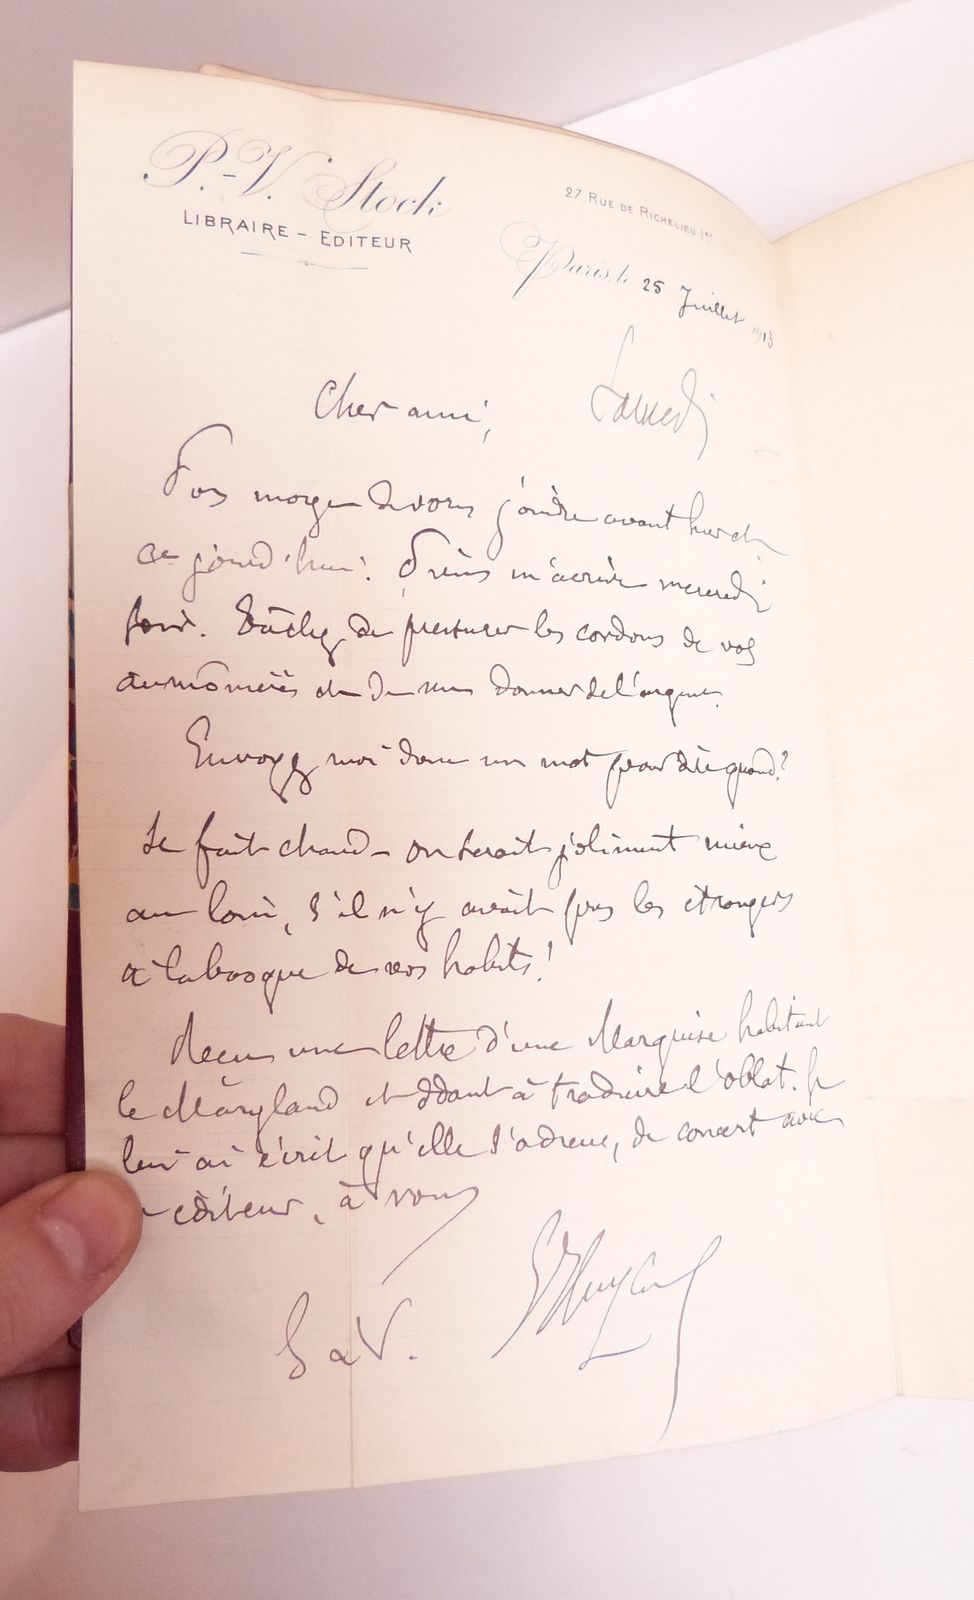 P.-V. Stock
LIBRAIRE - EDITEUR
27 RUE DE RICHELIEU 1er
Paris, le 25 Juillet 1913
Samedi
Cher ami,
Pas moyen de vous joindre avant hier et
ce jourd'hui. m'écrire mercredi
soir. Tâchez de pressurer les cordons de vos
aumônières et de me donner de l'argent.
Envoyez moi donc un mot pour dire quand?
Il fait chaud - on serait joliment mieux
au loin, s'il n'y avait pas les étrangers
à la basque de vos habits!
Reçu une lettre d'une Marquise habitant
le Maryland et ddant à traduire l'Oblat. Je
lui ai écrit qu'elle s'adresse, de concert avec
éditeur, à vous
B à V.
Huysmans